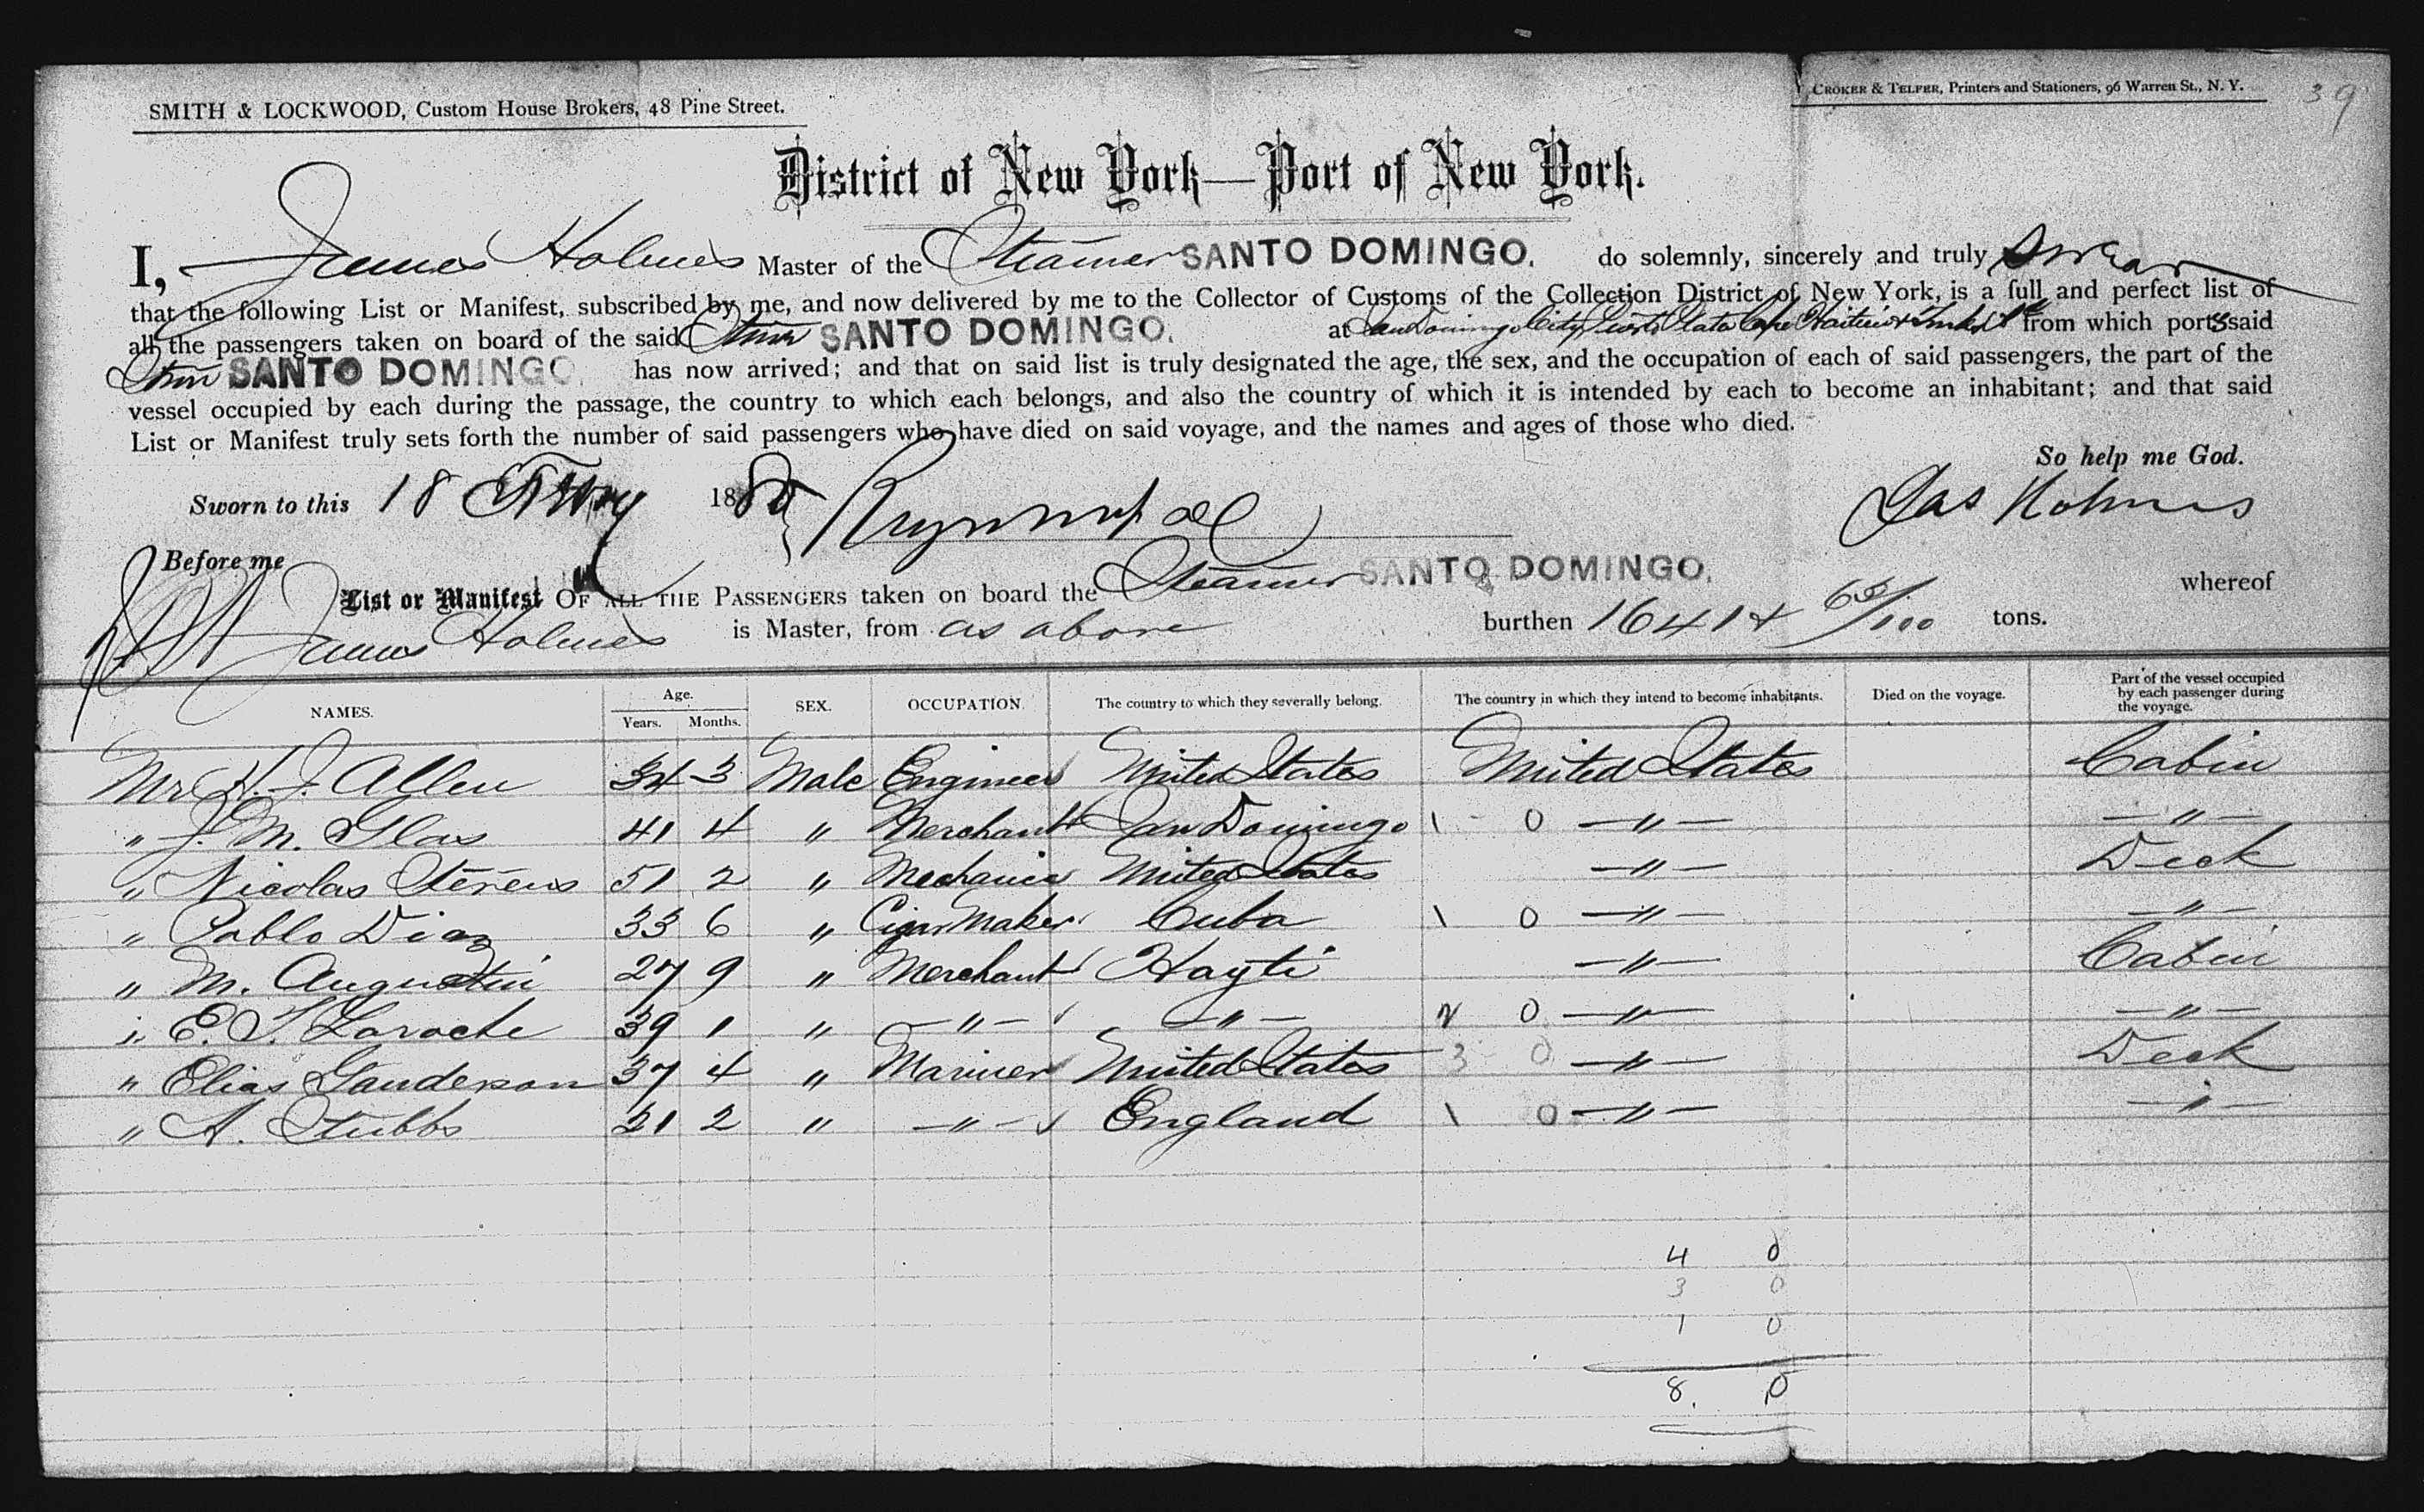 SMITH & LOCKWOOD, Custom House Brokers, 48 Pine Street.
CROKER & TELFER, Printers and Stationers, 96 Warren St., N. Y.
39
District of New York—Port of New York.
I, James Holmes Master of the Steamer SANTO DOMINGO. do solemnly, sincerely and truly swear
that the following List or Manifest, subscribed by me, and now delivered by me to the Collector of Customs of the Collection District of New York, is a full and perfect list of
all the passengers taken on board of the said Stmr SANTO DOMINGO. at San Domingo City, Puerto Plata Cape Haitien & Turks Id from which ports said
Stmr SANTO DOMINGO. has now arrived; and that on said list is truly designated the age, the sex, and the occupation of each of said passengers, the part of the
vessel occupied by each during the passage, the country to which each belongs, and also the country of which it is intended by each to become an inhabitant; and that said
List or Manifest truly sets forth the number of said passengers who have died on said voyage, and the names and ages of those who died.
So help me God.
Sworn to this 18 1880
Jas Holmes
Before me
List or Manifest OF ALL THE PASSENGERS taken on board the Steamer SANTO DOMINGO. whereof
James Holmes is Master, from as above burthen 1641 & 63/100 tons.
NAMES. Age. Years. Months. SEX. OCCUPATION. The country to which they severally belong. The country in which they intend to become inhabitants. Died on the voyage. Part of the vessel occupied by each passenger during the voyage.
Mr H. J. Allen 34 3 Male Engineer United States United States Cabin
" J. M. Glas 41 4 " Merchant San Domingo 1 0 —"— —"—
" Nicolas Stevens 51 2 " Mechanic United States —"— Deck
" Pablo Diaz 33 6 " Cigar Maker Cuba 1 0 —"— —"—
" M. Augustin 27 9 " Merchant Hayti —"— Cabin
" E. S. Laroche 39 1 " —"— —"— 2 0 —"— —"—
" Elias Ganderson 37 4 " Mariner United States 3 0 —"— Deck
" A. Stubbs 21 2 " —"— England 1 0 —"— —"—
4 0
3 0
1 0
8. 0